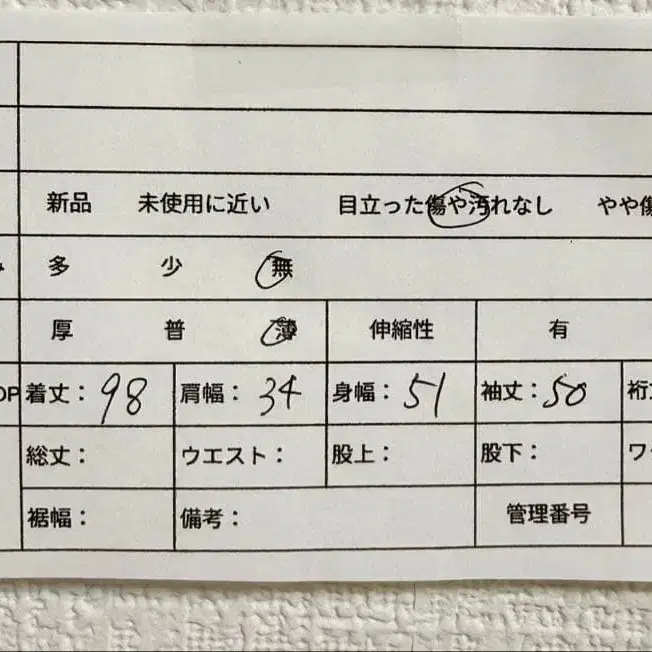 新品 未使用に近い 目立った傷や汚れなし やや傷
多 少 無
厚 普 薄 伸縮性 有
OP 着丈： 98 肩幅： 34 身幅： 51 袖丈： 50 裄
総丈： ウエスト： 股上： 股下： ワ
裾幅： 備考： 管理番号